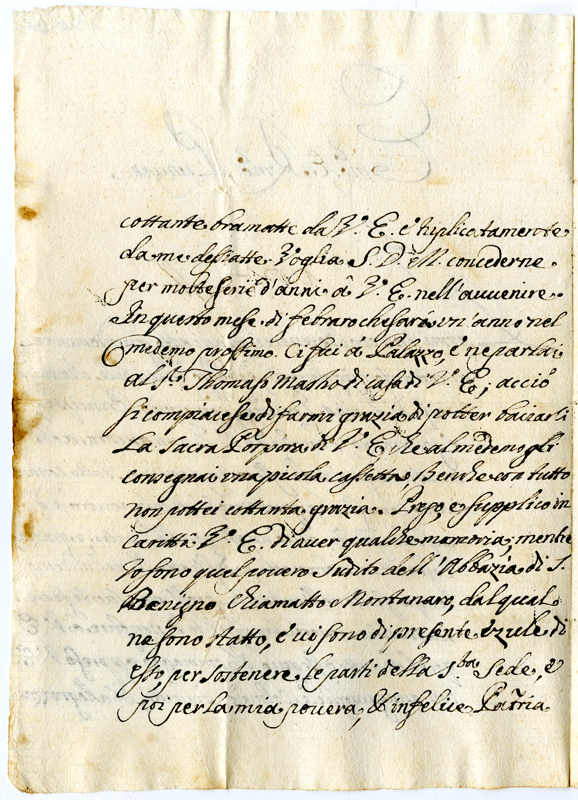 cottante bramatte da V.ª E. è triplicatamente
da me desiatte Voglia S. D. M. concederne
per molte serie d'anni à V.ª E. nell'avvenire
In questo mese di febraro che sarà un'anno nel
medemo prossimo. Ci fui à Palazzo, è ne parlai
al S.r Thomaso Masho di casa di V.ª E, acciò
si compiacese di farmi grazia di potter baciarli
La Sacra Porpora di V.ª E che al medemo gli
consegnai una picola cassetta Benche con tutto
non pottei cottanta grazia. Prego, e supplico in
Carittà V.ª E. di aver qualche memoria, mentre
Io sono quel povero Sudito dell'Abbazia di S.
Benigno Chiamatto Montanaro, dal qual
ne sono statto, è vi sono di presente ezule di
esso, per sostenere le parti della S.ta Sede, e
poi per la mia povera, & infelice Patria